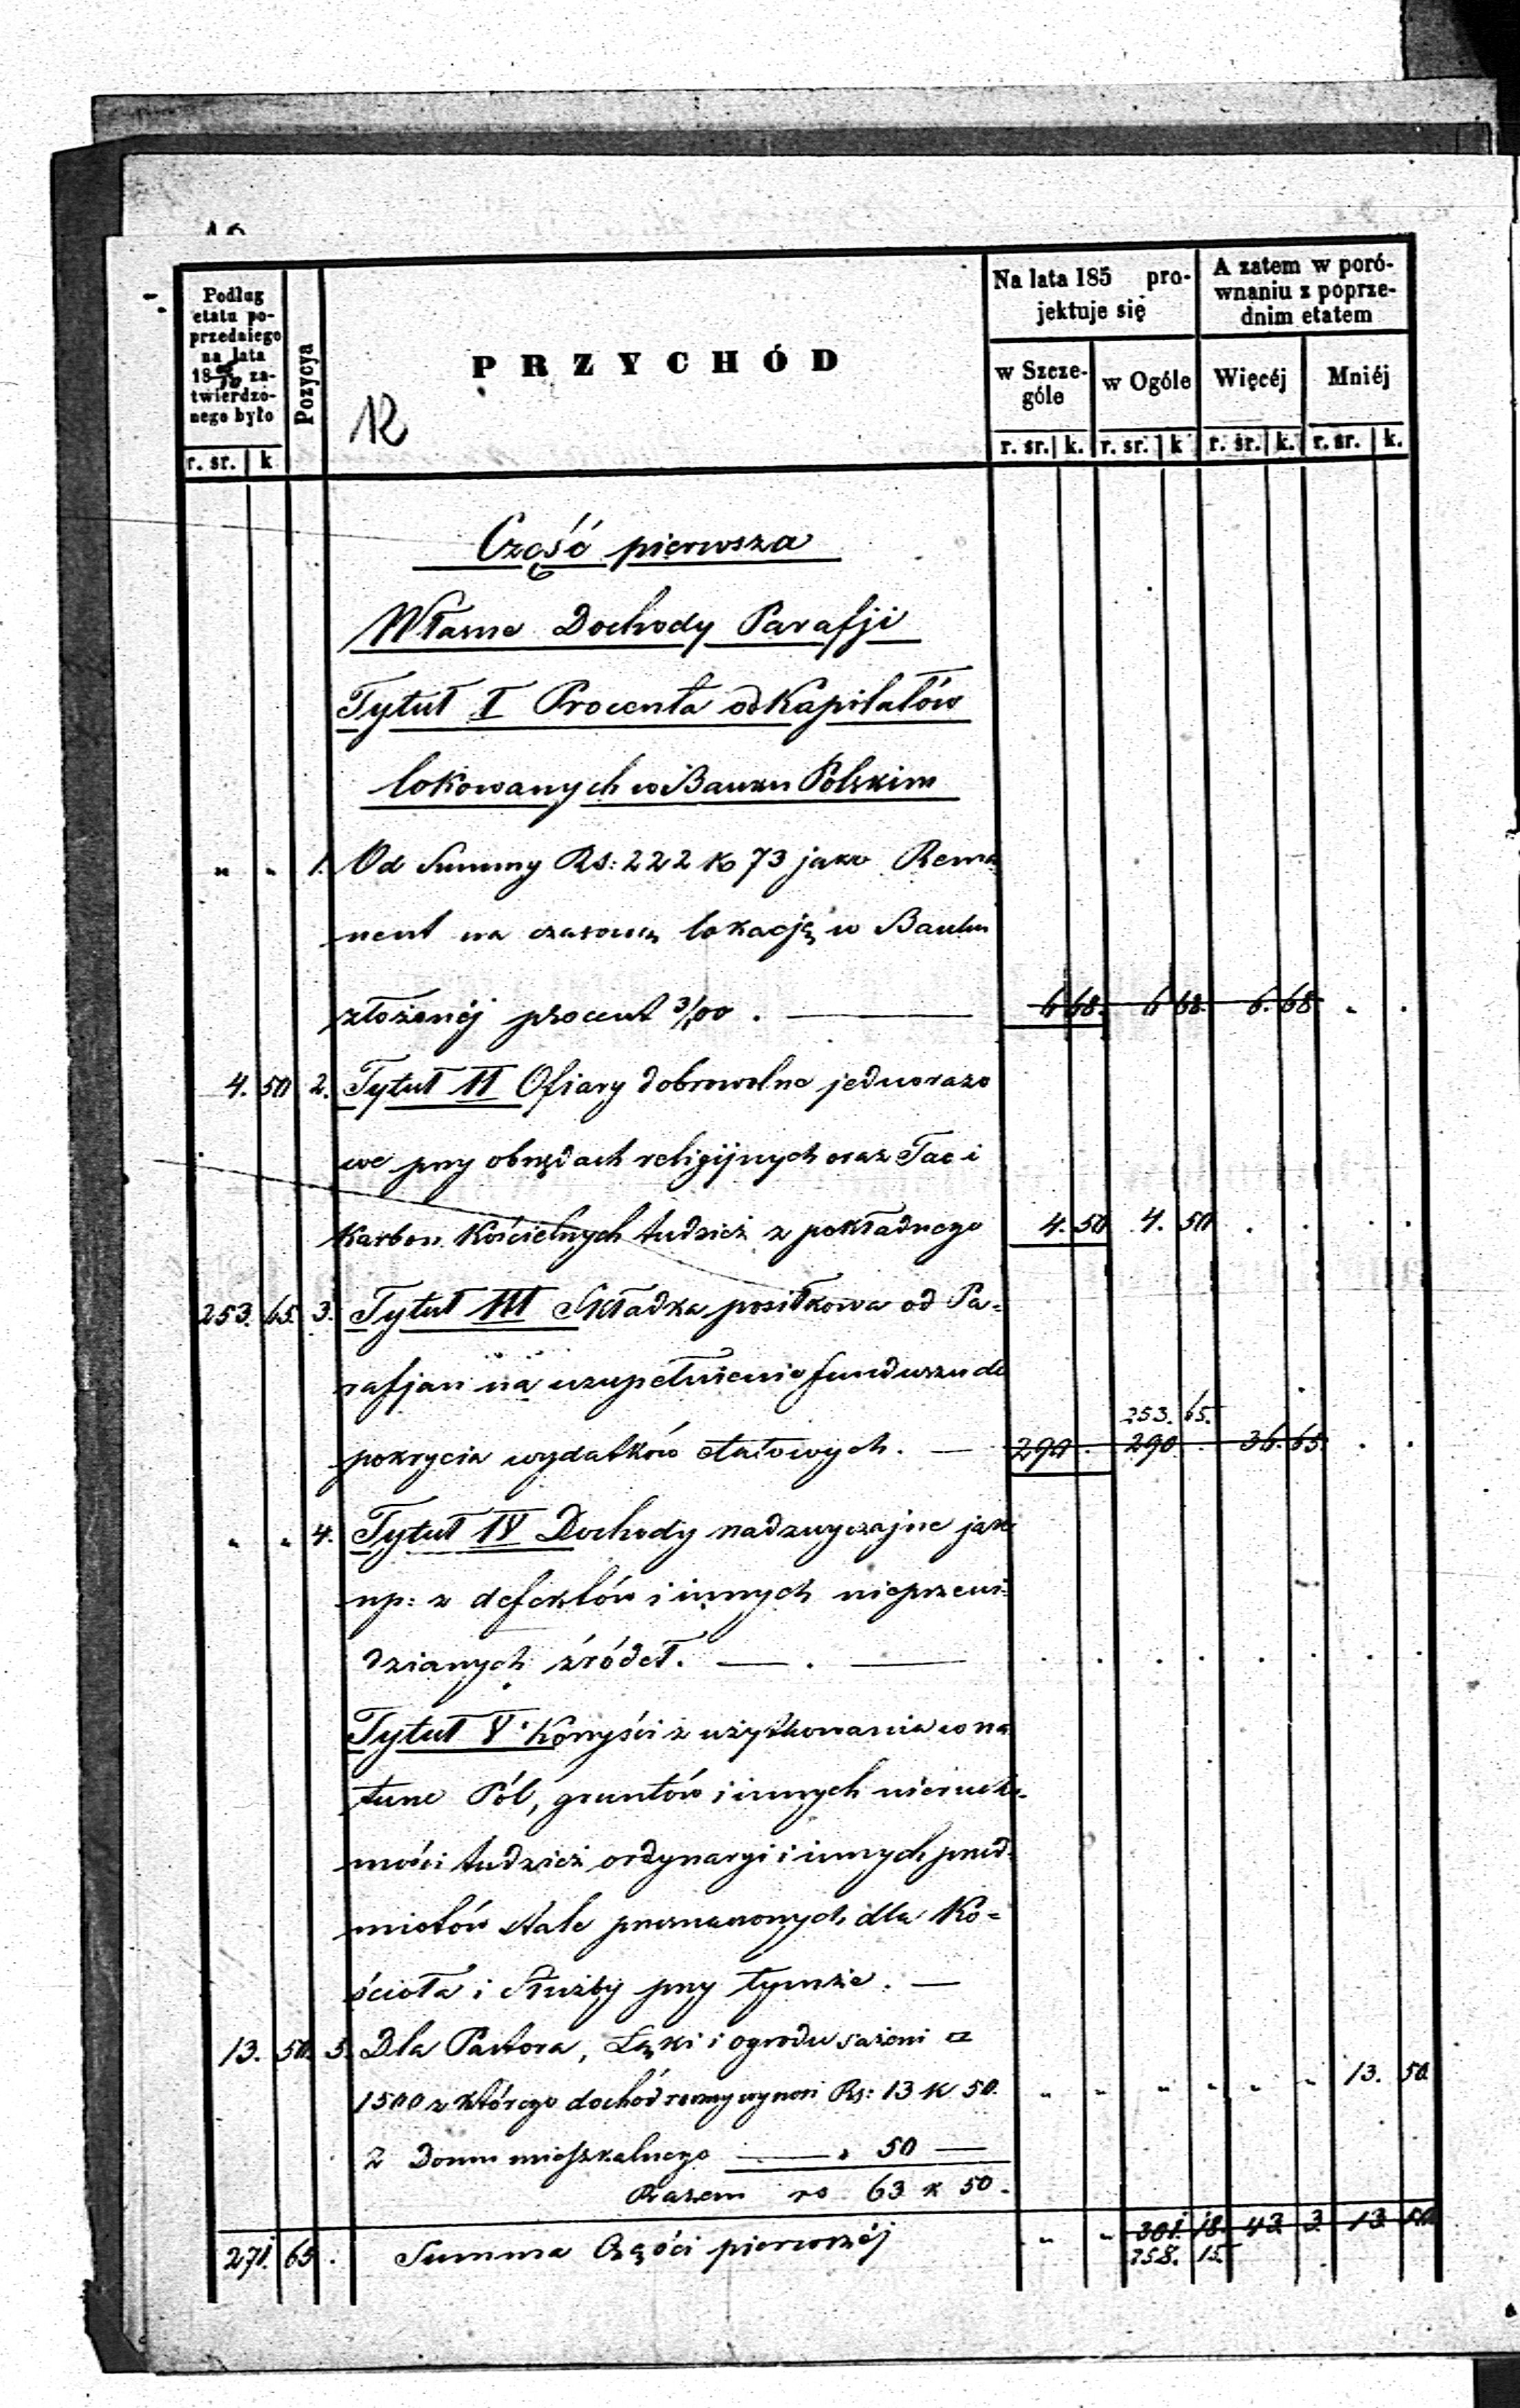 Podług etatu poprzedniego na lata 18 zatwierdzonego było
Pozycya
PRZYCHÓD
12
Na lata 185 projektuje się
A zatem w porównaniu z poprzednim etatem
w Szczególe
w Ogóle
Więcéj
Mniéj
r. sr. k r. sr. k. r. sr. k r. sr. k. r. sr. k.
Część pierwsza
Własne Dochody Parafji
Tytuł I Procenta od Kapitałów
lokowanych w Banku Polskim
" " 1. Od Summy Rs: 222 k 73 jako Rema
nent na czasową lokacją w Banku
złożonéj procent 3/00 . — 6 68. 6 68. 6. 68 . .
4. 50 2. Tytuł II Ofiary dobrowolne jednorazo
we przy obrzędach religijnych oraz Tac i
Karbon Kościelnych tudzież z pokładnego 4. 50 4. 50 . . . .
253. 65. 3. Tytuł III Składka posiłkowa od Pa=
rafjan na uzupełnienie funduszu do
253. 65.
pokrycia wydatków etatowych. — 290 . 290 . 36. 65 . .
" " 4. Tytuł IV Dochody nadzwyczajne jako
np: z defektów i innych nieprzewi=
dzianych źródeł. — . — . . . . . . . .
Tytuł V: Korzyści z użytkowania w na
turze Pól, gruntów i innych nierucho=
mości tudzież ordynaryi i innych przed=
miotów stale przeznaczonych dla Ko=
ścioła i Służby przy tymże. —
13. 50. 5. Dla Pastora, Łąki i ogrodu sażeni □
1500 z którego dochód roczny wynosi Rs: 13 k 50. " " " " " " 13. 50
Z Domu mieszkalnego — " 50 —
Razem rs 63 k 50.
271. 65 . Summa Części pierwszéj " " 301. 18. 43. 3. 13. 50.
258. 15.